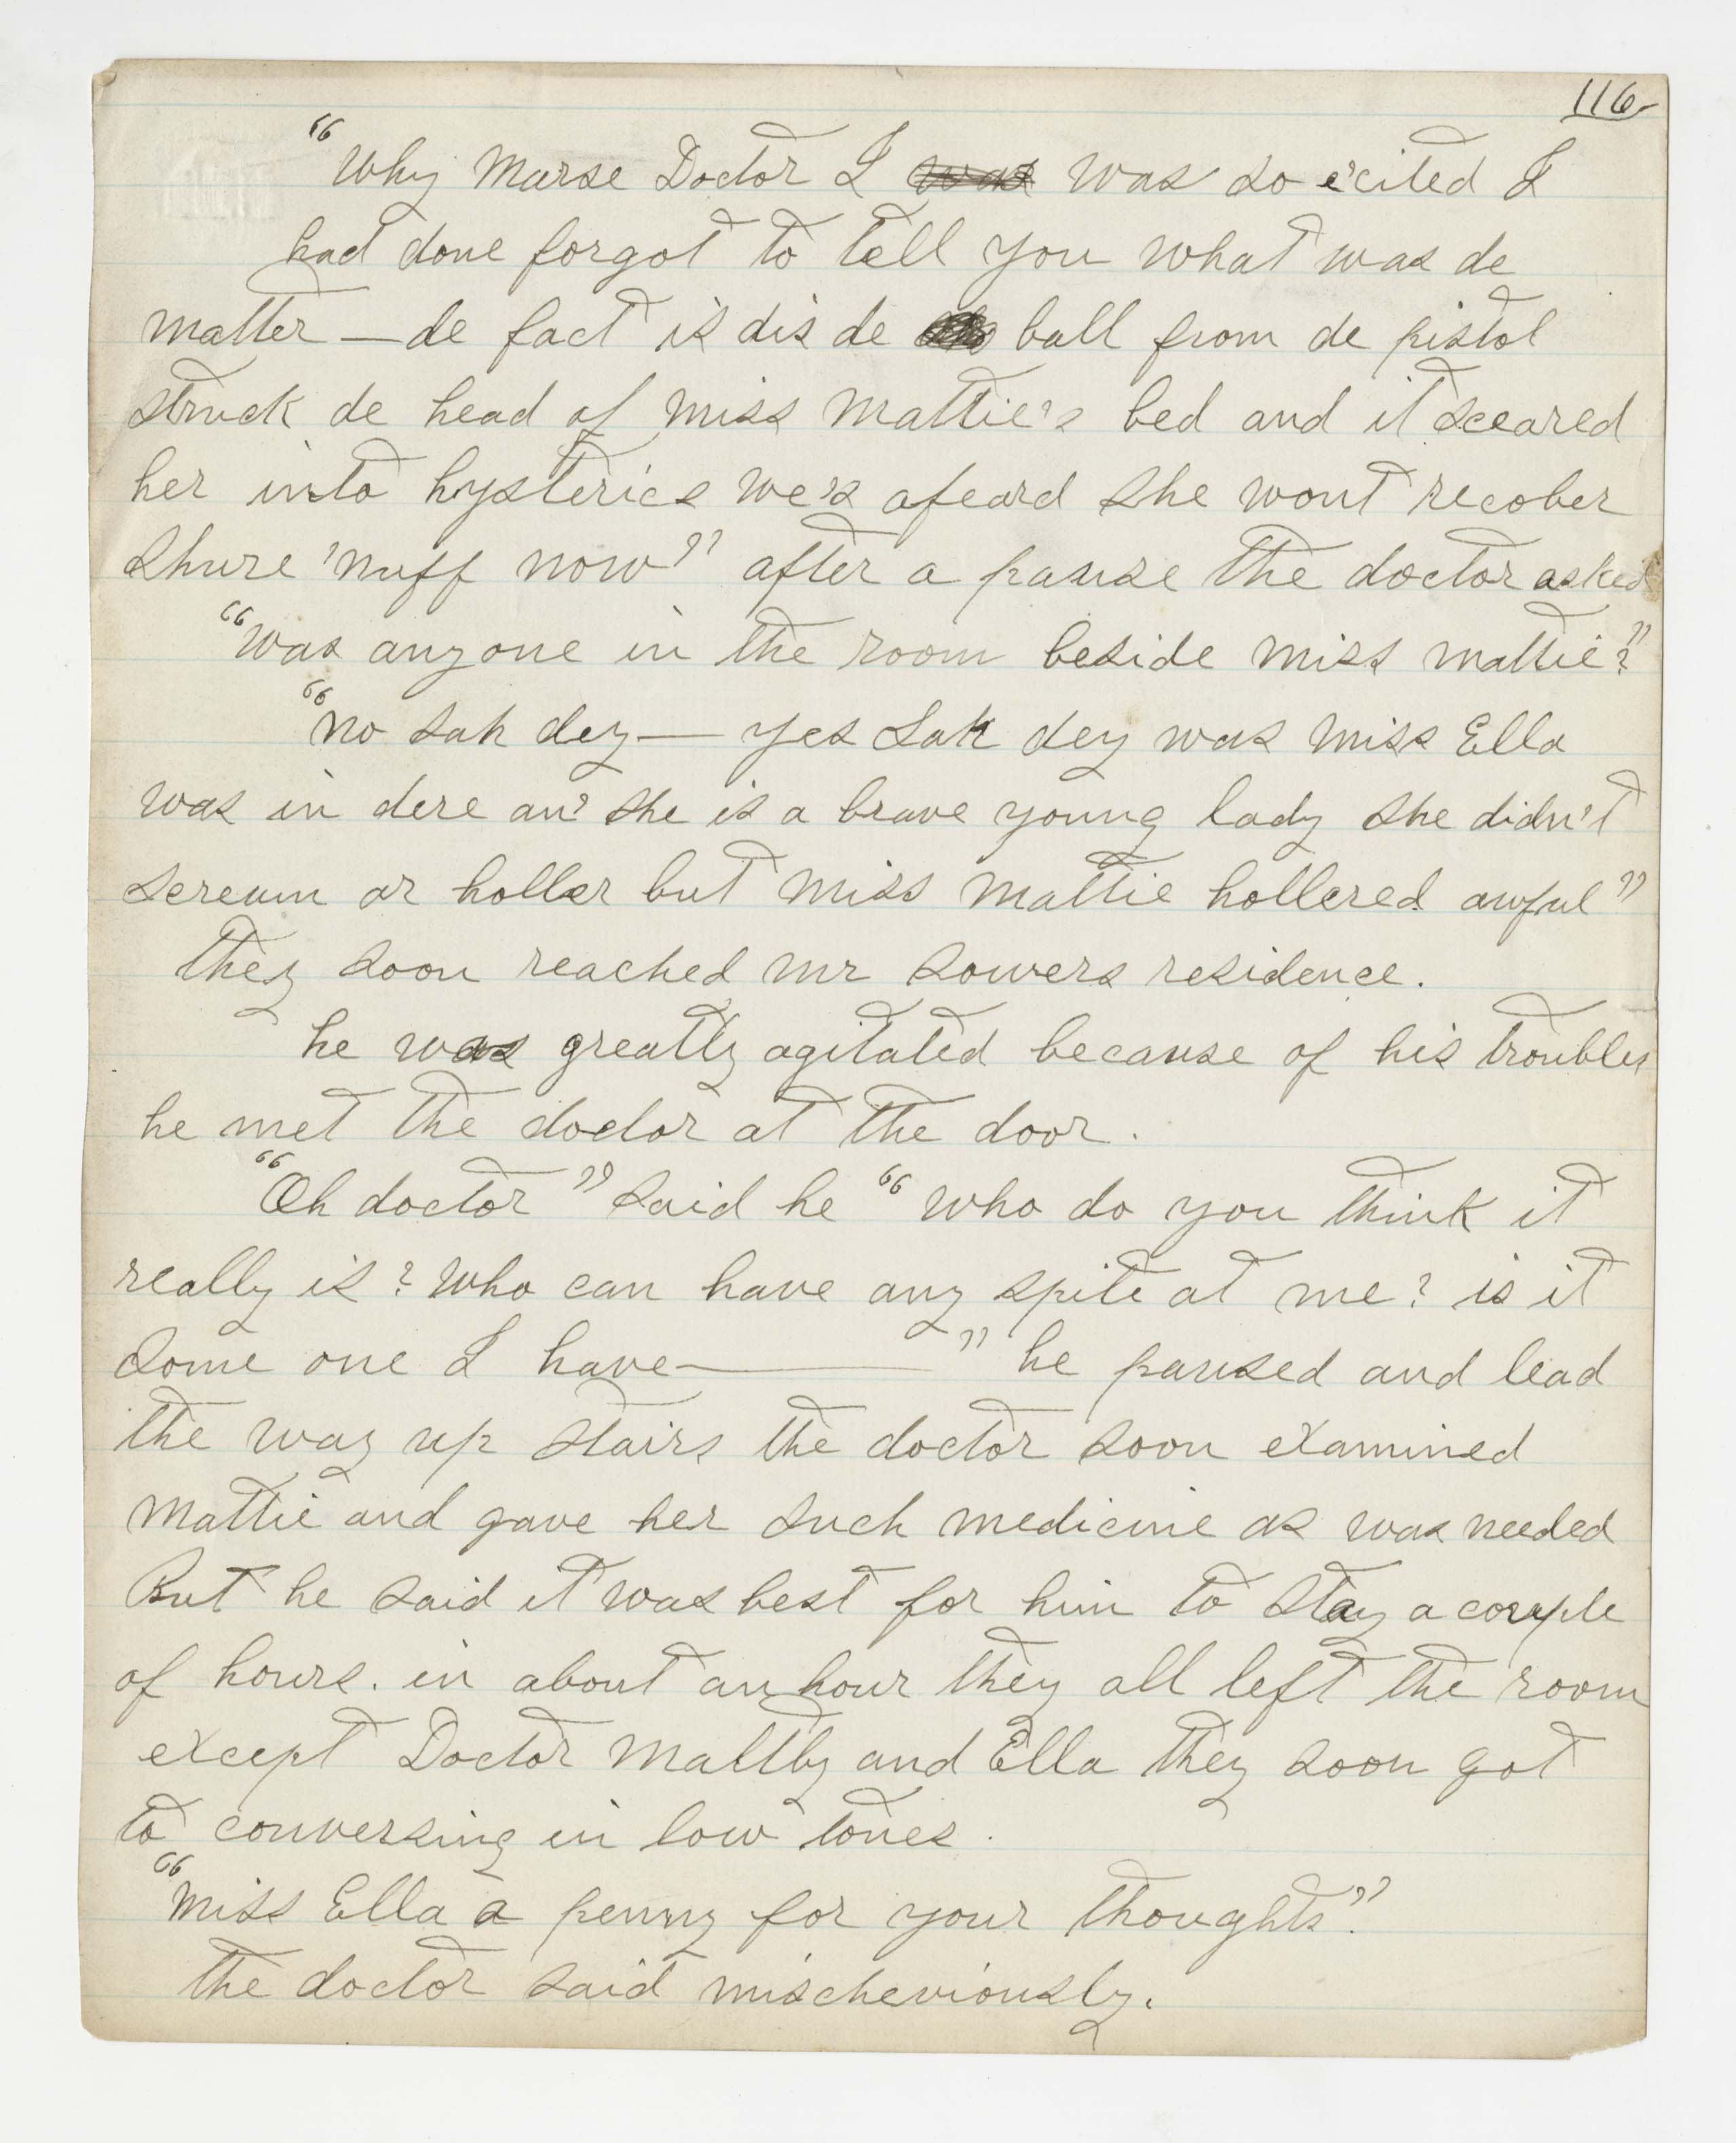 116
"Why Marse Doctor I was was so e'cited I
had done forgot to tell you what was de
matter — de fact is dis de ball from de pistol
struck de head of Miss Mattie's bed and it sceared
her into hysterics we's afeard she wont recober
shure 'nuff now" after a pause the doctor asked
"Was anyone in the room beside Miss Mattie?"
"No sah dey — yes sah dey was Miss Ella
was in dere an' she is a brave young lady she didn't
scream or holler but Miss Mattie hollered awful"
they soon reached Mr Sowers residence.
he was greatly agitated because of his troubles
he met the doctor at the door.
"Oh doctor" said he "who do you think it
really is? Who can have any spite at me? is it
some one I have —" he paused and lead
the way up stairs the doctor soon examined
Mattie and gave her such medicine as was needed
But he said it was best for him to stay a couple
of hours. in about an hour they all left the room
except Doctor Maltby and Ella they soon got
to conversing in low tones.
"Miss Ella a penny for your thoughts".
the doctor said mischeviously.